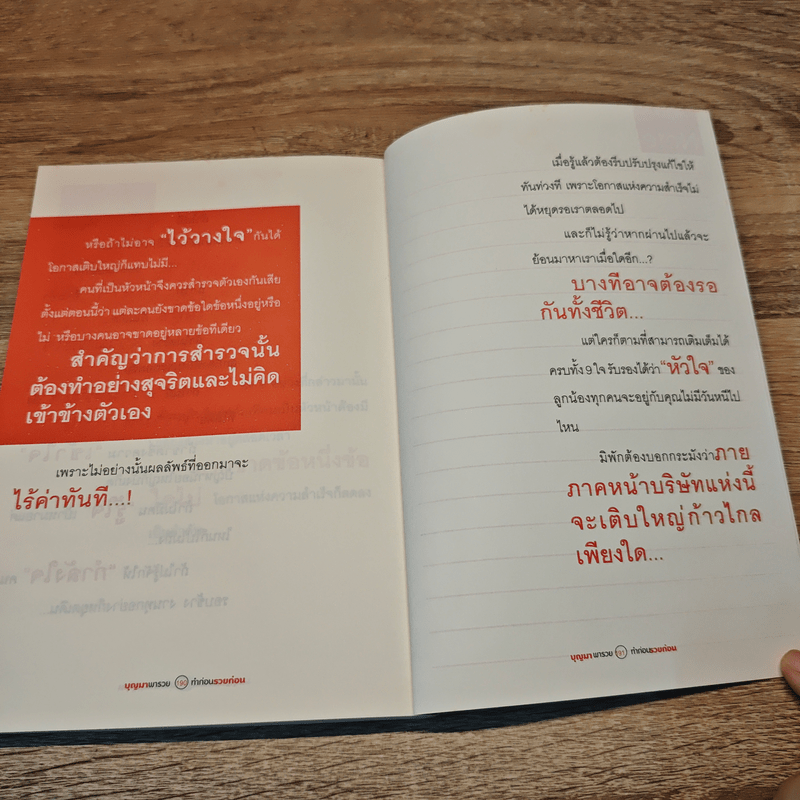 หรือถ้าไม่อาจ “ไว้วางใจ” กันได้
โอกาสเติบใหญ่ก็แทบไม่มี...
คนที่เป็นหัวหน้าจึงควรสำรวจตัวเองกันเสีย
ตั้งแต่ตอนนี้ว่า แต่ละคนยังขาดข้อใดข้อหนึ่งอยู่หรือ
ไม่ หรือบางคนอาจขาดอยู่หลายข้อทีเดียว
สำคัญว่าการสำรวจนั้น
ต้องทำอย่างสุจริตและไม่คิด
เข้าข้างตัวเอง
เพราะไม่อย่างนั้นผลลัพธ์ที่ออกมาจะ
ไร้ค่าทันที...!
บุญมาพารวย 190 ทำก่อนรวยก่อน
เมื่อรู้แล้วต้องรีบปรับปรุงแก้ไขให้
ทันท่วงที เพราะโอกาสแห่งความสำเร็จไม่
ได้หยุดรอเราตลอดไป
และก็ไม่รู้ว่าหากผ่านไปแล้วจะ
ย้อนมาหาเราเมื่อใดอีก...?
บางทีอาจต้องรอ
กันทั้งชีวิต...
แต่ใครก็ตามที่สามารถเติมเต็มได้
ครบทั้ง 9 ใจ รับรองได้ว่า “หัวใจ” ของ
ลูกน้องทุกคนจะอยู่กับคุณไม่มีวันหนีไป
ไหน
มิพักต้องบอกกระมังว่าภาย
ภาคหน้าบริษัทแห่งนี้
จะเติบใหญ่ก้าวไกล
เพียงใด...
บุญมาพารวย 191 ทำก่อนรวยก่อน